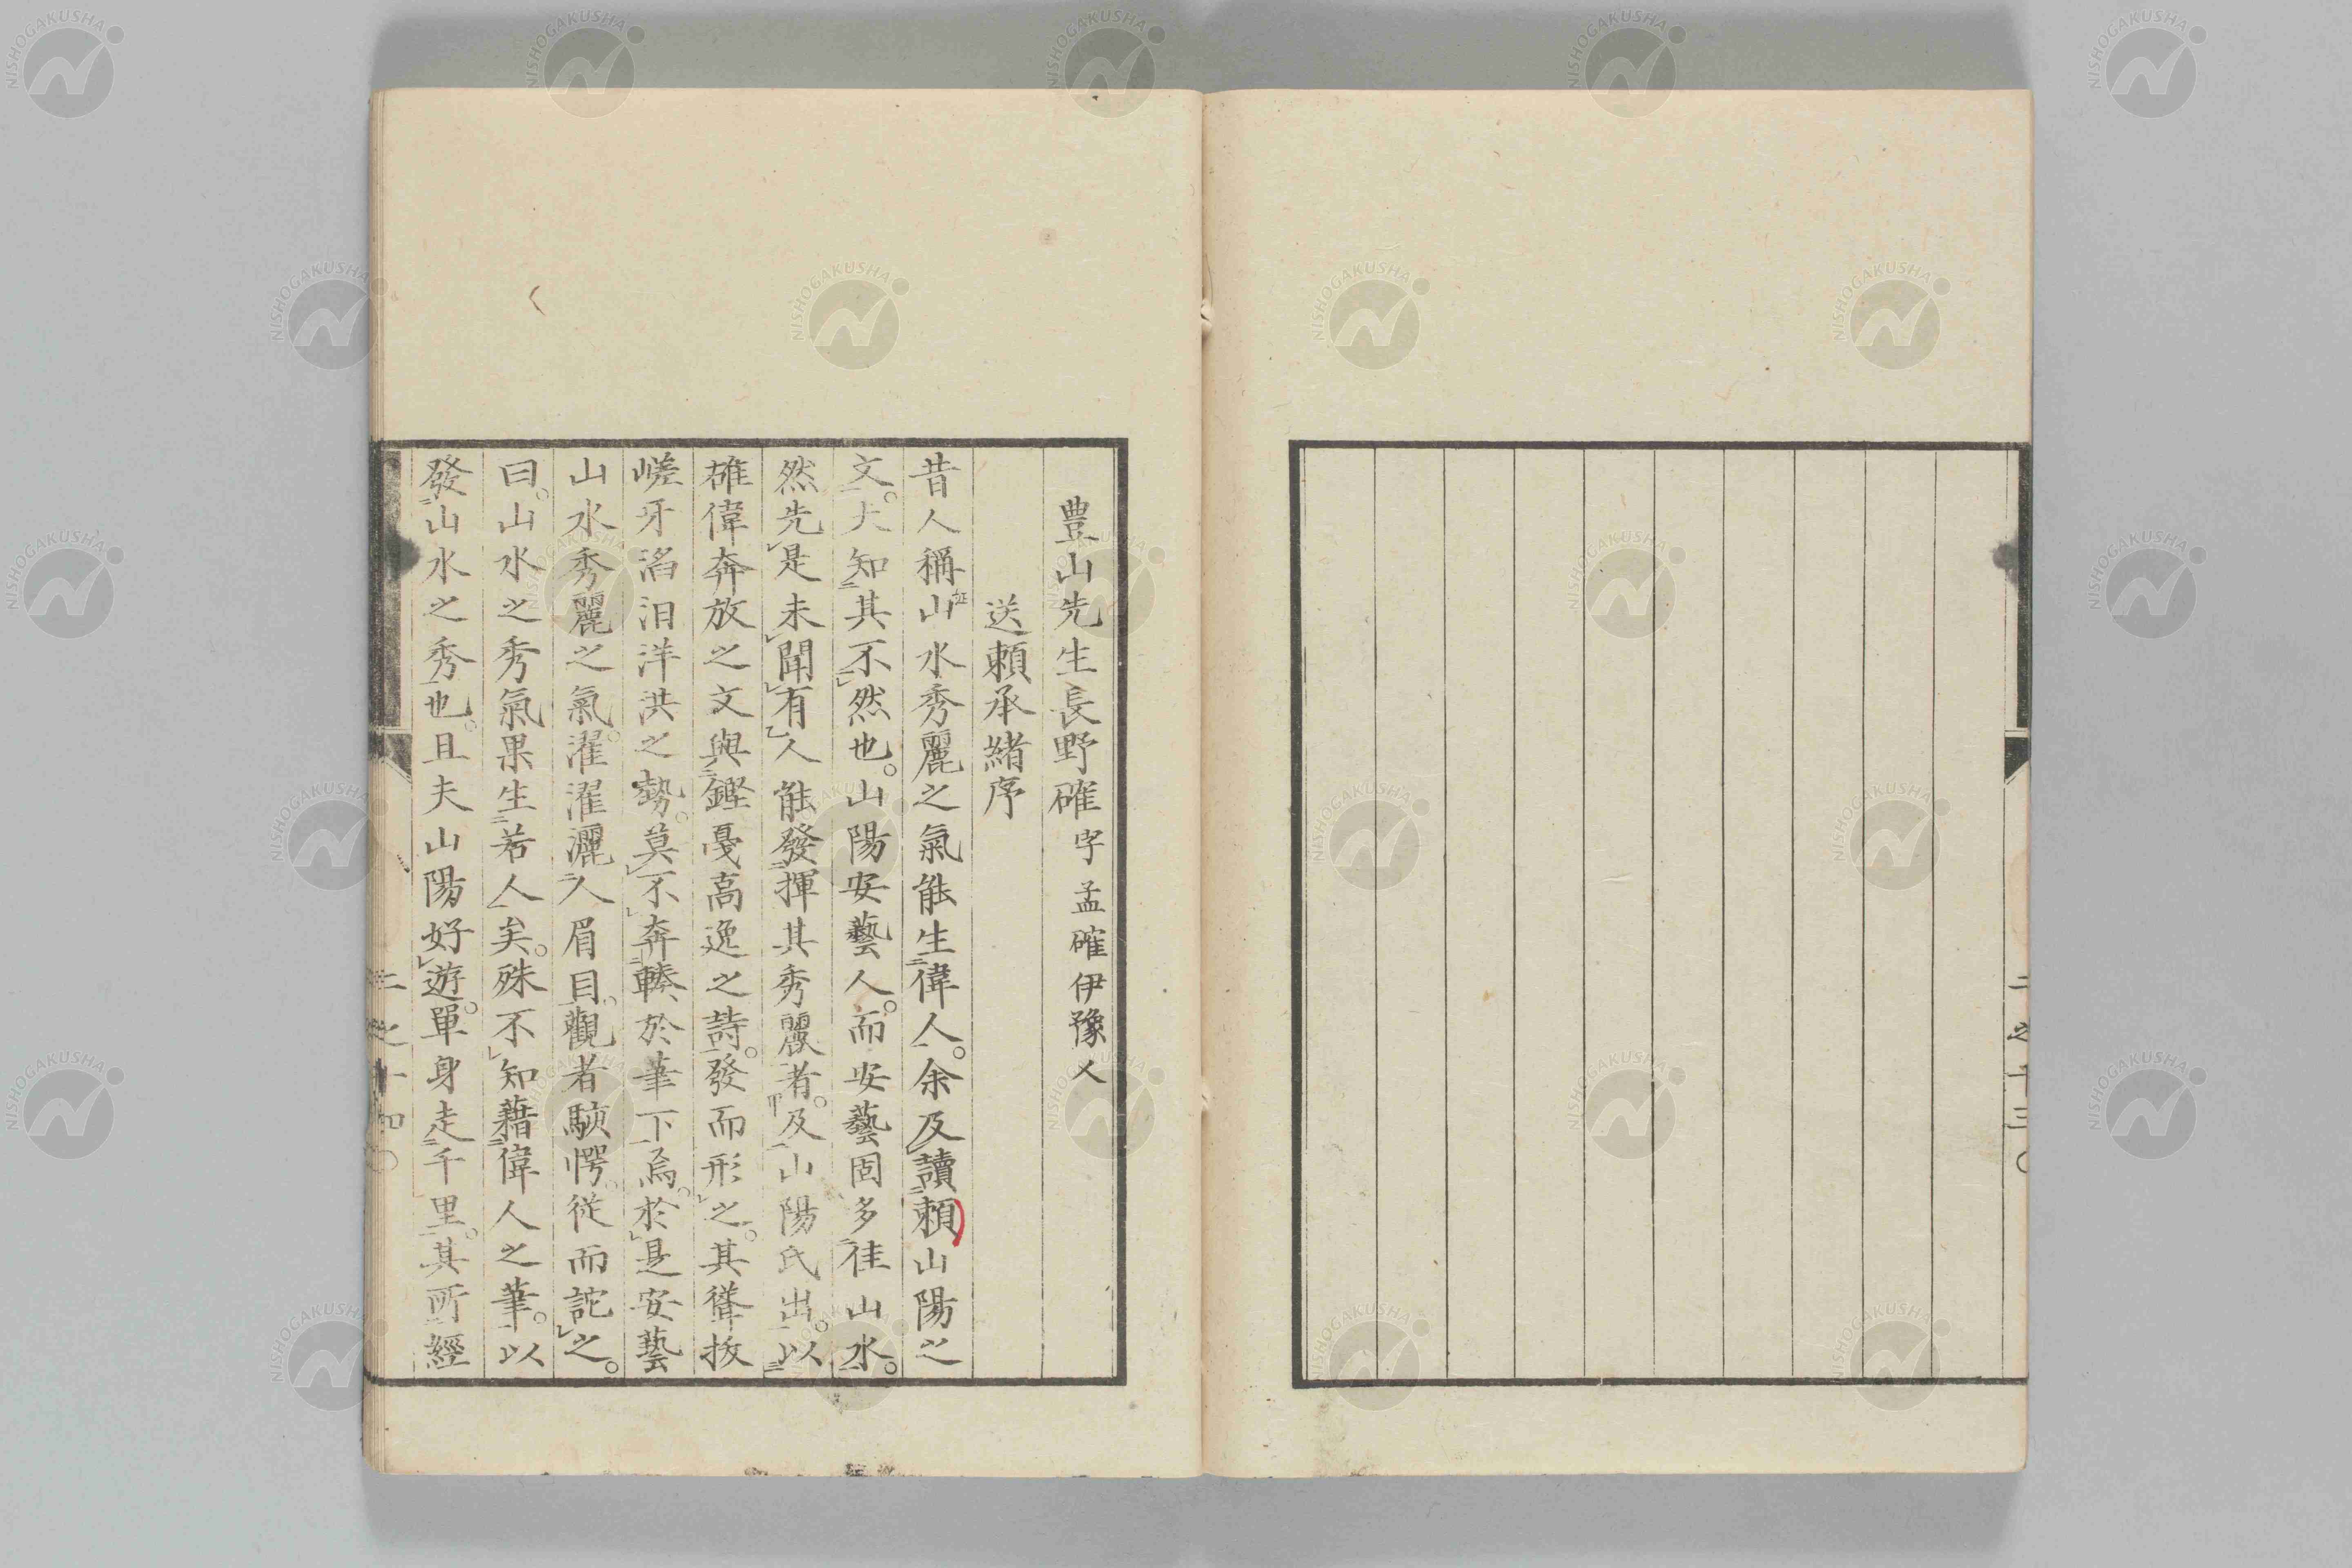 二之十三〇
豊山先生長野確字孟確伊豫人
送賴承緒序
昔人稱山水秀麗之氣能生偉人。余及讀賴山陽之
文。大知其不然也。山陽安藝人。而安藝固多佳山水。
然先是未聞有人能發揮其秀麗者。及山陽氏出。以
雄偉奔放之文與鏗戛高逸之詩。發而形之。其聳拔
嵯牙滔汨洋洪之勢。莫不奔輳於筆下焉。於是安藝
山水秀麗之氣。濯濯灑人眉目。觀者駭愕。從而詑之。
曰。山水之秀氣果生若人矣。殊不知藉偉人之筆。以
發山水之秀也。且夫山陽好遊。單身走千里。其所經
二之十四〇
NISHOGAKUSHA